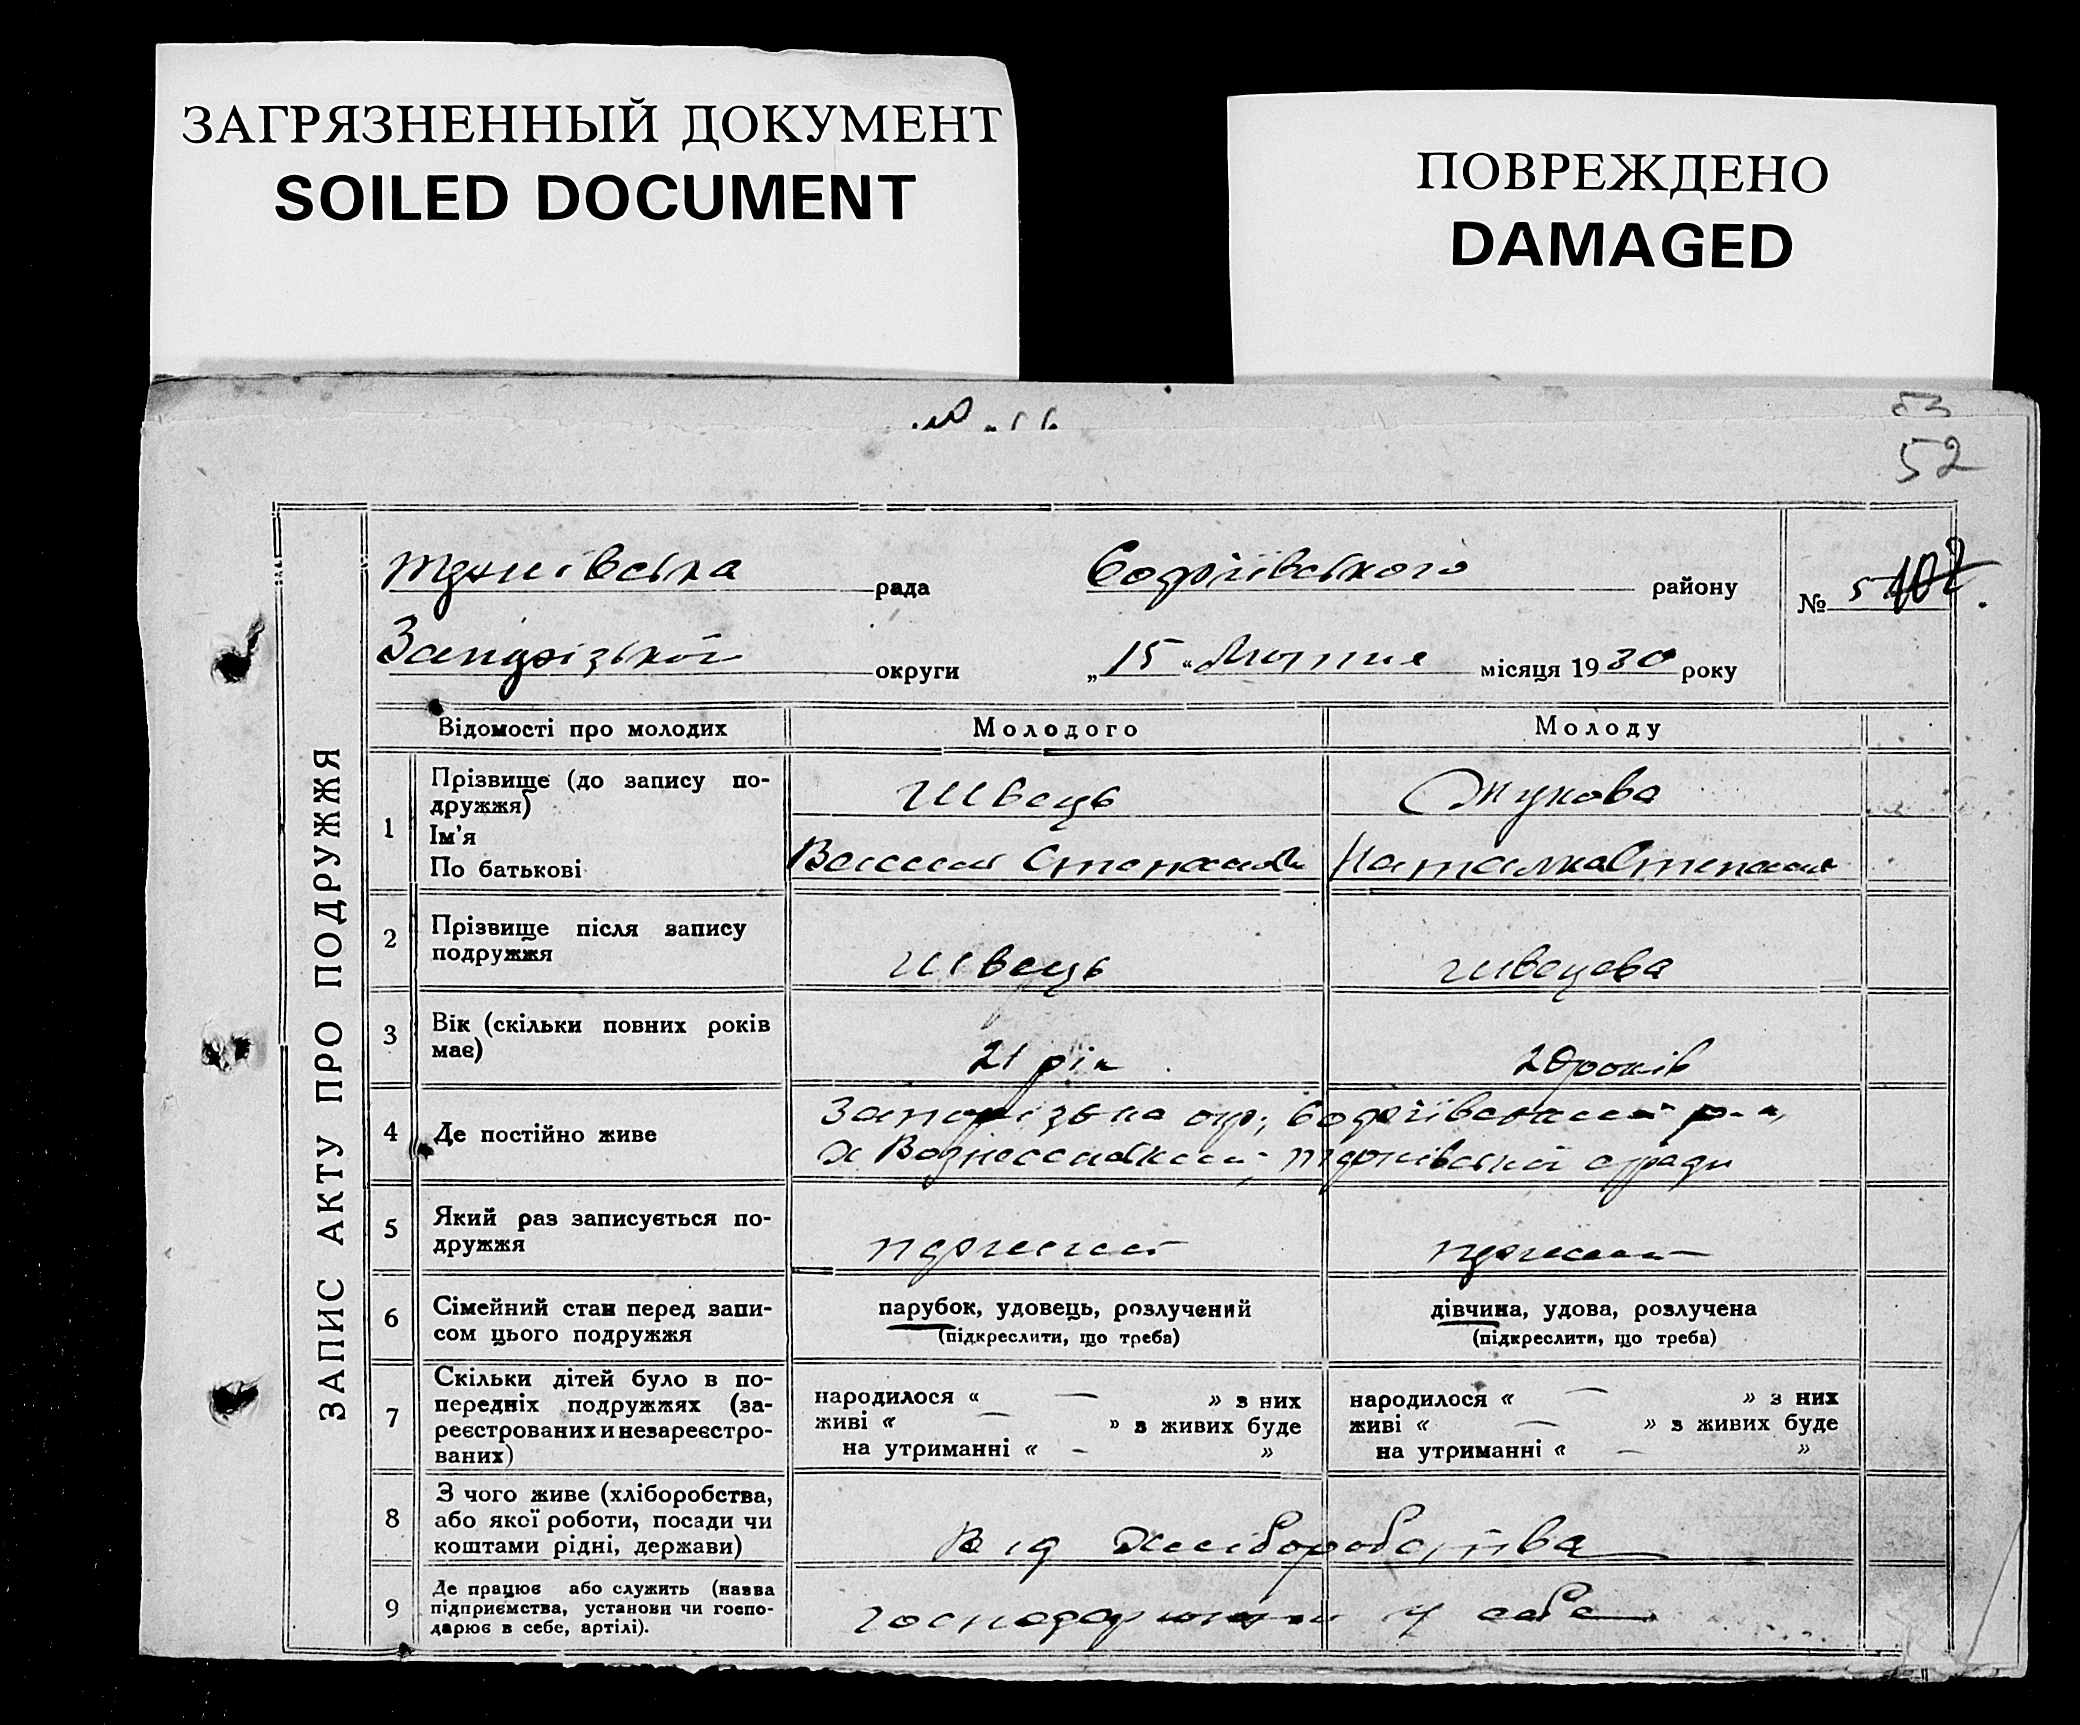 ЗАГРЯЗНЕННЫЙ ДОКУМЕНТ
SOILED DOCUMENT
ПОВРЕЖДЕНО
DAMAGED
53
52
ЗАПИС АКТУ ПРО ПОДРУЖЖЯ
рада Софіївського району
№ 5
Запорізької округи „15 “ Лютня місяця 1930 року
Відомості про молодих Молодого Молоду
1 Прізвище (до запису по-
дружжя)
Швець Жукова
Ім'я
По батькові
Степанов Наталка Степанов
2 Прізвище після запису
подружжя
Швець Швецева
3 Вік (скільки повних років
має)
21 рік 20 років
4 Де постійно живе
Запорізька окр; Софіївський р-н,
х ради
5 Який раз записується по-
дружжя
первий первий
6 Сімейний стан перед запи-
сом цього подружжя
парубок, удовець, розлучений
(підкреслити, що треба)
дівчина, удова, розлучена
(підкреслити, що треба)
7 Скільки дітей було в по-
передніх подружжях (за-
реєстрованих и незареєстро-
ваних)
народилося « — » з них
живі « — » з живих буде
на утриманні « — »
народилося « — » з них
живі « — » з живих буде
на утриманні « — »
8 З чого живе (хліборобства,
або якої роботи, посади чи
коштами рідні, держави)
Від хліборобства
9 Де працює або служить (назва
підприємства, установи чи госпо-
дарює в себе, артілі).
у себе